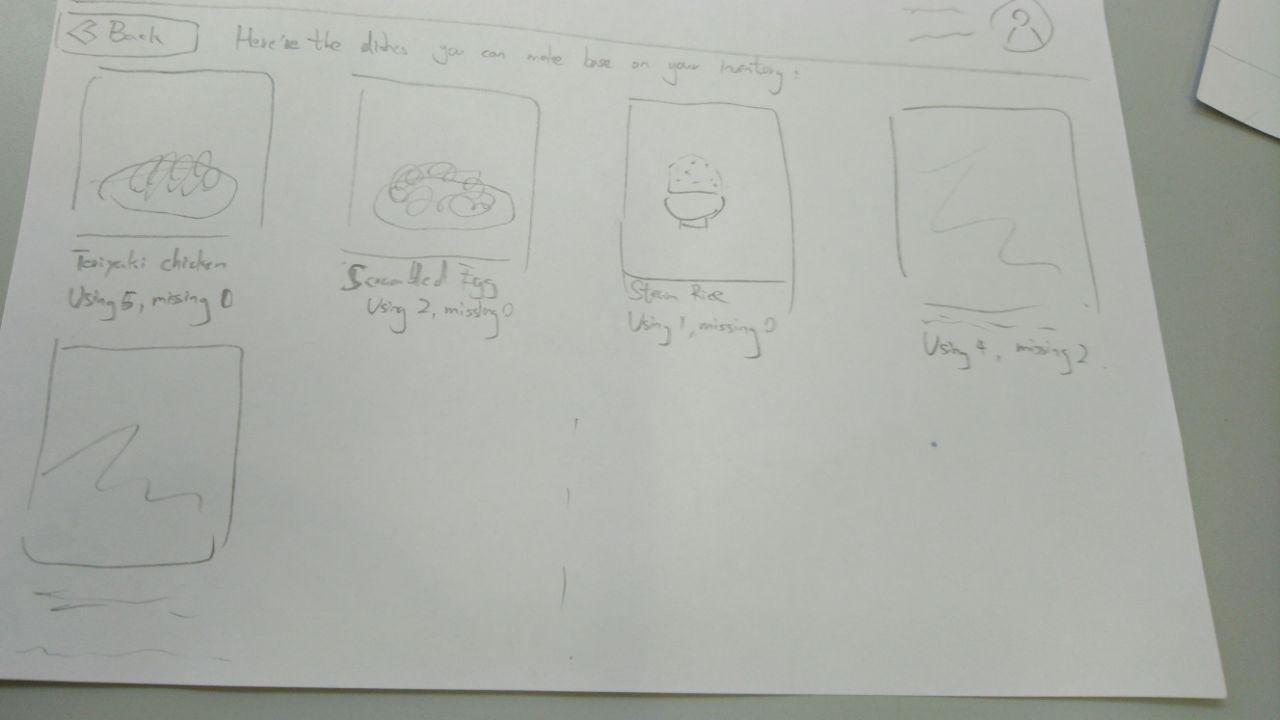 Back
Here're the dishes you can make base on your inventory:
Teriyaki chicken
Using 5, missing 0
Scrambled Egg
Using 2, missing 0
Steam Rice
Using 1, missing 0
Using 4, missing 2